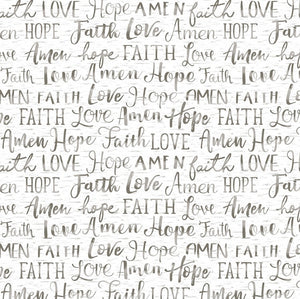 faith LOVE Hope AMEN faith
AMEN HOPE Faith Love Amen
Love Amen hope FAITH Love
Faith Love Amen Hope Faith
AMEN FAITH Love Hope AMEN
HOPE FAITH Love Amen Hope FAITH
Amen Hope Faith LOVE Amen
faith LOVE Hope AMEN faith
AMEN HOPE Faith Love Amen
Love Amen hope FAITH Love
Faith Love Amen Hope Faith
AMEN FAITH Love Hope AMEN
HOPE FAITH Love Amen Hope